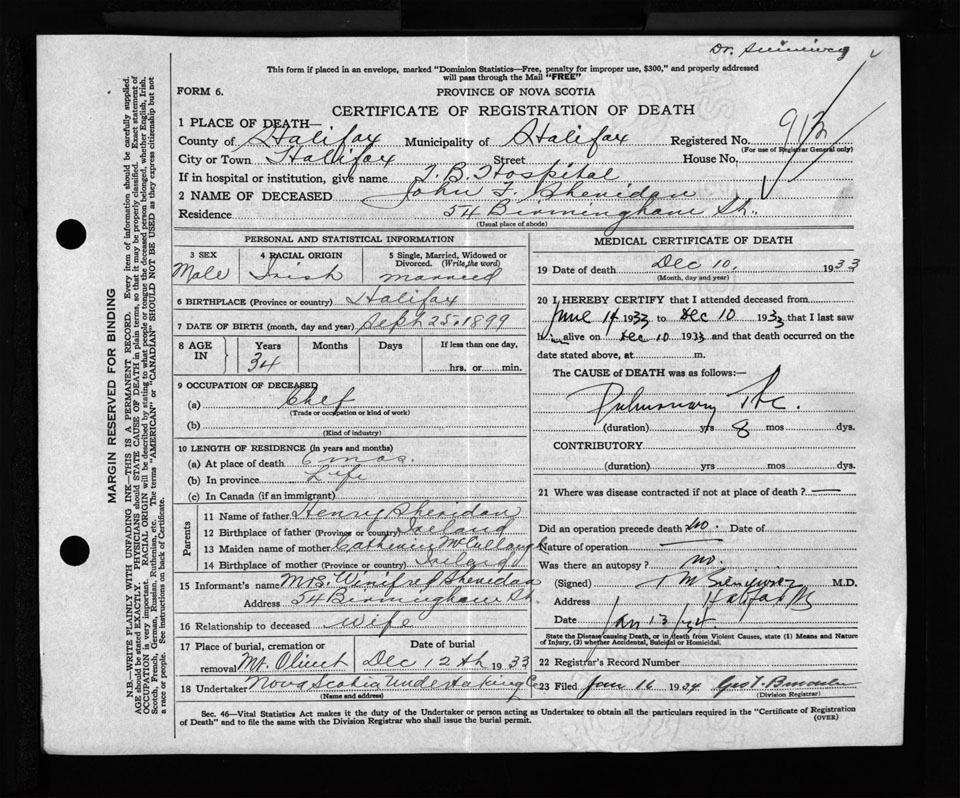 Dr.
This form if placed in an envelope, marked "Dominion Statistics—Free, penalty for improper use, $300," and properly addressed
will pass through the Mail "FREE"
FORM 6.
PROVINCE OF NOVA SCOTIA
CERTIFICATE OF REGISTRATION OF DEATH
1 PLACE OF DEATH—
County of Halifax Municipality of Halifax Registered No.
(For use of Registrar General only)
City or Town Halifax Street House No.
If in hospital or institution, give name T. B. Hospital
2 NAME OF DECEASED John F. Sheridan
Residence 54 Birmingham St.,
(Usual place of abode)
PERSONAL AND STATISTICAL INFORMATION
3 SEX 4 RACIAL ORIGIN 5 Single, Married, Widowed or
Divorced. (Write, the word)
Male Irish Married
6 BIRTHPLACE (Province or country) Halifax
7 DATE OF BIRTH (month, day and year) Sept 25, 1899
8 AGE IN Years Months Days If less than one day,
34 hrs. or min.
9 OCCUPATION OF DECEASED
(a) Chef
(Trade or occupation or kind of work)
(b)
(Kind of industry)
10 LENGTH OF RESIDENCE (in years and months)
(a) At place of death 6 mos.
(b) In province Life
(c) In Canada (if an immigrant)
Parents
11 Name of father Henry Sheridan
12 Birthplace of father (Province or country) Ireland
13 Maiden name of mother Catherine McCullough
14 Birthplace of mother (Province or country) Ireland
15 Informant's name Winifred Sheridan
Address 54 Birmingham St.
16 Relationship to deceased Wife
17 Place of burial, cremation or Date of burial
removal Mt. Olivet Dec 12th 1933
18 Undertaker Nova Scotia Undertaking Co
(Name and address)
MEDICAL CERTIFICATE OF DEATH
19 Date of death Dec 10, 1933
(Month, day and year)
20 I HEREBY CERTIFY that I attended deceased from
June 14 1933 to Dec 10 1933 that I last saw
h alive on Dec 10 1933 and that death occurred on the
date stated above, at m.
The CAUSE of DEATH was as follows:—
Pulmonary Tbc.
(duration) yrs 8 mos dys.
CONTRIBUTORY
(duration) yrs mos dys.
21 Where was disease contracted if not at place of death?
Did an operation precede death no. Date of
Nature of operation
Was there an autopsy? no.
(Signed) M.D.
Address Halifax NS
Date Jan 13/34
State the Disease causing Death, or in death from Violent Causes, state (1) Means and Nature
of Injury, (2) whether Accidental, Suicidal or Homicidal.
22 Registrar's Record Number
23 Filed Jan 16 1934
(Division Registrar)
Sec. 46—Vital Statistics Act makes it the duty of the Undertaker or person acting as Undertaker to obtain all the particulars required in the "Certificate of Registration
of Death" and to file the same with the Division Registrar who shall issue the burial permit.
(OVER)
MARGIN RESERVED FOR BINDING
N.B.—WRITE PLAINLY WITH UNFADING INK—THIS IS A PERMANENT RECORD. Every item of information should be carefully supplied.
AGE should be stated EXACTLY. PHYSICIANS should STATE CAUSE OF DEATH in plain terms, so that it may be properly classified. Exact statement of
OCCUPATION is very important. RACIAL ORIGIN will be described by stating to what people or tongue the deceased person belonged, whether English, Irish,
Scotch, French, German, Russian, Ruthenian, etc. The terms "AMERICAN" or "CANADIAN" SHOULD NOT BE USED as they express citizenship but not
a race or people. See instructions on back of Certificate.